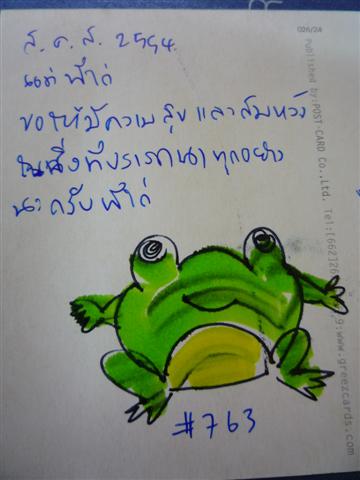 ส.ค.ส. 2554.
แด่ ฟ้าถ่
ขอให้มีความสุข และสมหวัง
ในสิ่งที่ปรารถนาทุกอย่าง
นะครับฟ้าถ่
#763
026/24
Published by:POST-CARD Co.,Ltd. Tel:(662)26
9:www.greezcards.com